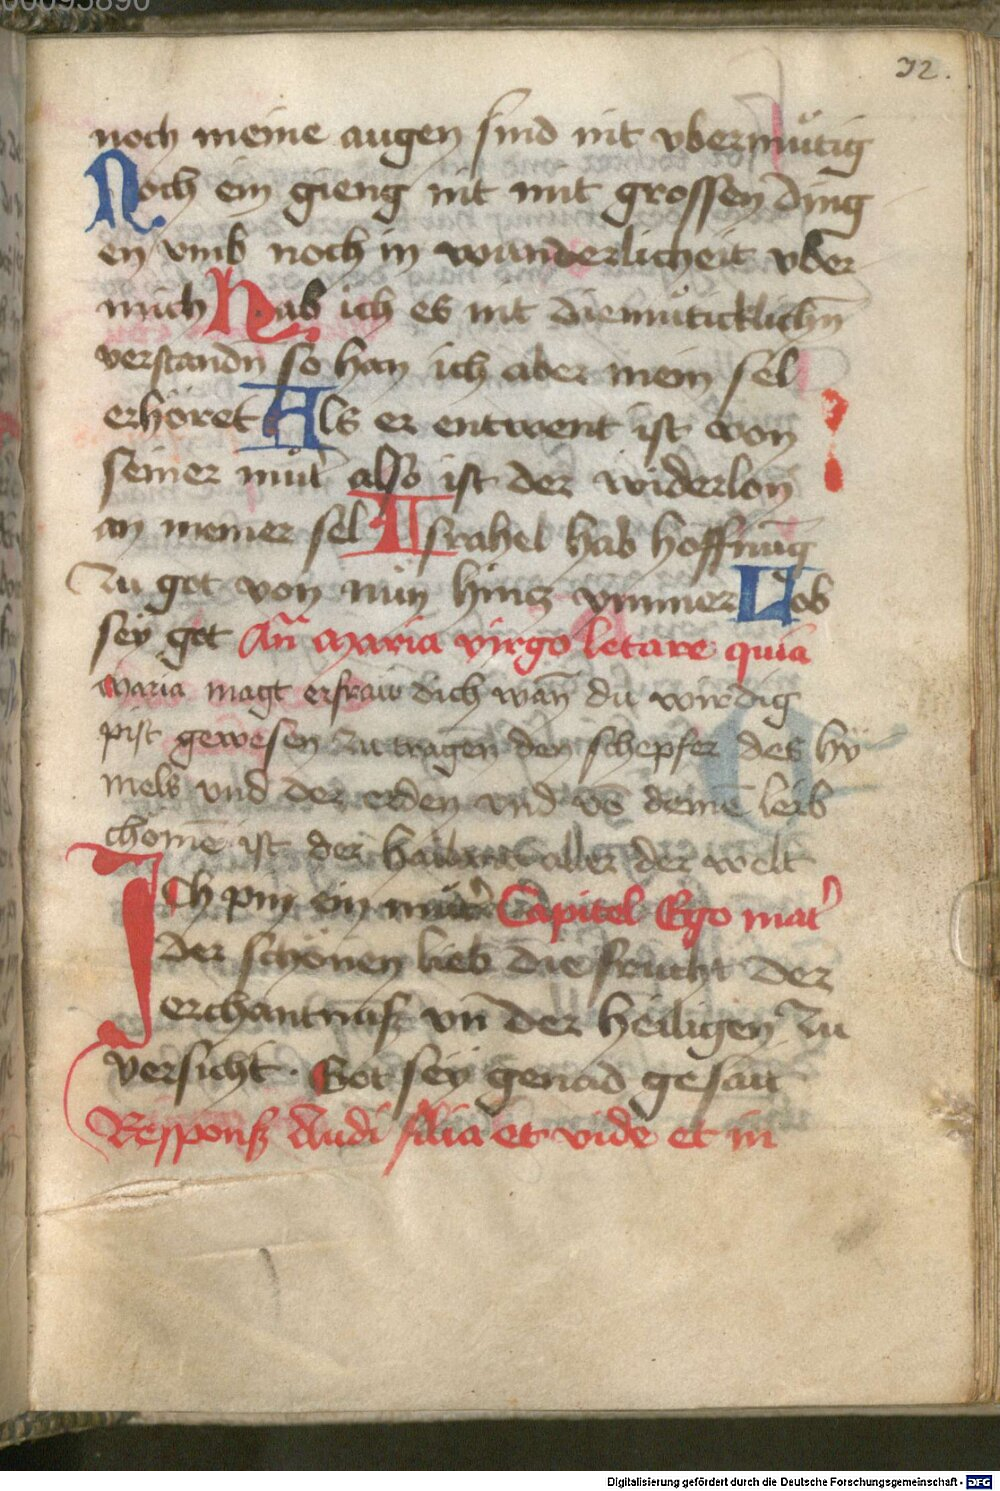 00095890
32.
noch meine augen sind nit vbermuͤtig
Noch ein gieng nit mit grossen ding
en vmb noch in wunderlicheit vber
mich Hab ich es nit diemuͤticklichñ
verstandñ so han ich aber mein sel
erhöret Als er entwent ist von
seiner muͤt̉ also ist der widerlon
an meiner sel Israhel hab hoffnūg
zu got von nün hintz ymmer Lob
seÿ got Añ Maria virgo letare quia
Maria magt erfraw dich wañ du wirdig
pist gewesen zu tragen den schepfer des hÿ
mels vnd der erden vnd vō deinē leib
chömē ist der haila aller der welt
Ich pin ein muͤt̉ Capitel Ego mat̉
der schönen lieb die frucht der
erchantnuß vñ der heiligen zu
versicht · Got seÿ genad gesait
Responß Audi filia et vide et in
Digitalisierung gefördert durch die Deutsche Forschungsgemeinschaft - DFG